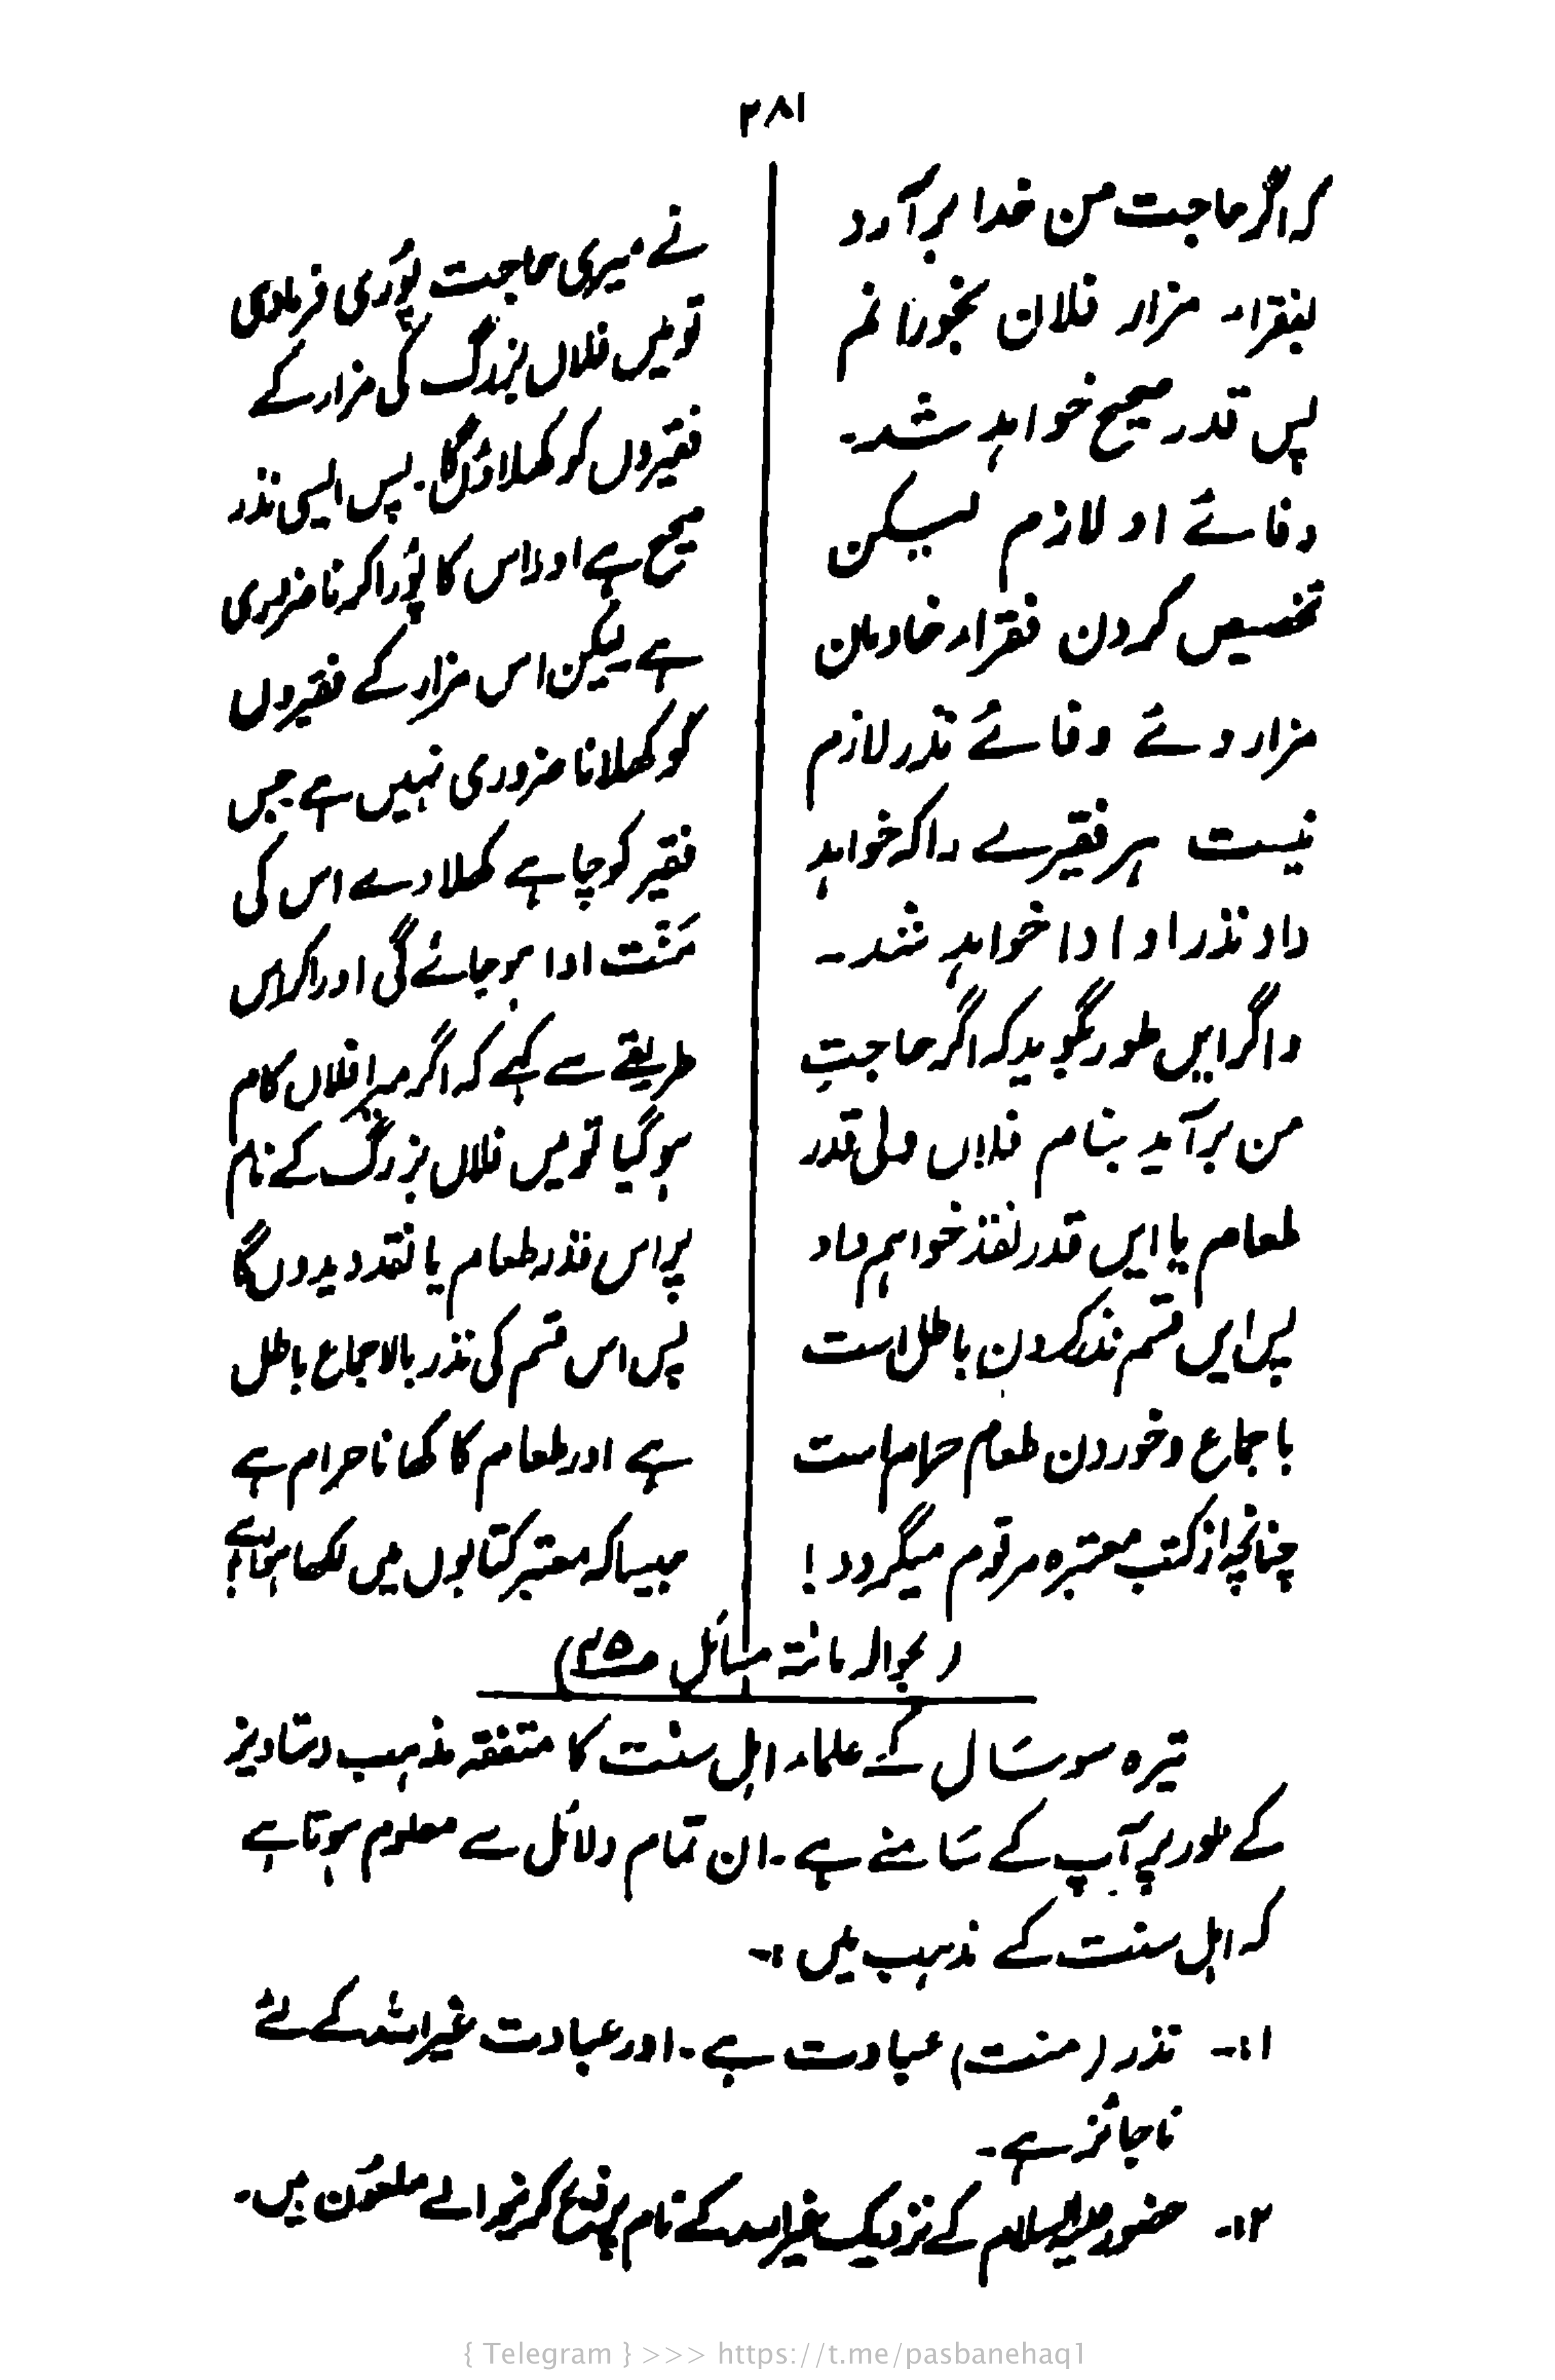 ۲۸۱
کہ اگر حاجت من خدا بر آرد
بفقراء مزار فلان بخورانم
پس قدر صحیح خواہد شد۔
وفائے او لازم لیکن
تخصیص کردن فقراء خادمان
مزار وئے وفائے نذر لازم
نیست ہر فقیرے را کہ خواہد
داد نذر او ادا خواہد شد۔
واگر ایں طور بگوید کہ اگر حاجتِ
من بر آید بنام فلاں ولی قدر
طعام یا ایں قدر نقد خواہم داد
پس ایں قسم نذر کردن باطل است
باجماع وخوردن طعام حرام است
چنانچہ از کتب معتبرہ مرقوم میگردد!
نے میری حاجت پُوری فرمادی
تو میں فلاں بزرگ کی مزار کے
فقیروں کو کھلاؤں گا۔ پس ایسی نذر
صحیح ہے اور اس کا پُورا کرنا ضروری
ہے۔ لیکن اس مزار کے فقیروں
کو کھلانا ضروری نہیں ہے جس
فقیر کو چاہے کھلادے اس کی
مَنّت ادا ہوجائے گی اور اگر اس
طریقے سے کہے کہ اگر میرا فلاں کام
ہو گیا تو میں فلاں بزرگ کے نام
پر اس قدر طعام یا نقد دیدوں گا
پس اس قسم کی نذر بالاجماع باطل
ہے اور طعام کا کھانا حرام ہے
جیسا کہ معتبر کتابوں میں لکھا ہوا ہے
(بحوالہ مائتہ مسائل
تیرہ سو سَال کے علماء اہل سنت کا متفقہ مذہب دستاویز
کے طور پر آپ کے سَامنے ہے۔ ان تمام دلائل سے معلوم ہوتا ہے
کہ اہل سنت کے مذہب میں :۔
۱:۔ نذر (منت) عبادت ہے۔ اور عبادت غیراللہ کے لئے
ناجائز ہے۔
۲:۔ حضور علیہ السلام کے نزدیک غیراللہ کے نام پر ذبح کرنیوالے ملعُون ہیں۔
{ Telegram } >>> https://t.me/pasbanehaq1